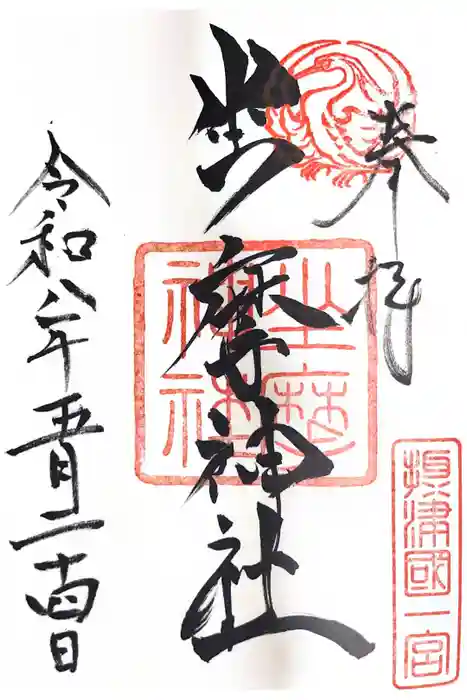 奉拝
摂津國一宮
坐摩神社
坐摩
神社
令和八年五月二十四日